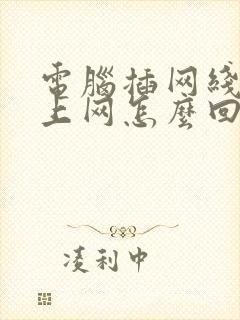 電腦插网綫
上网怎麽回
凌利中